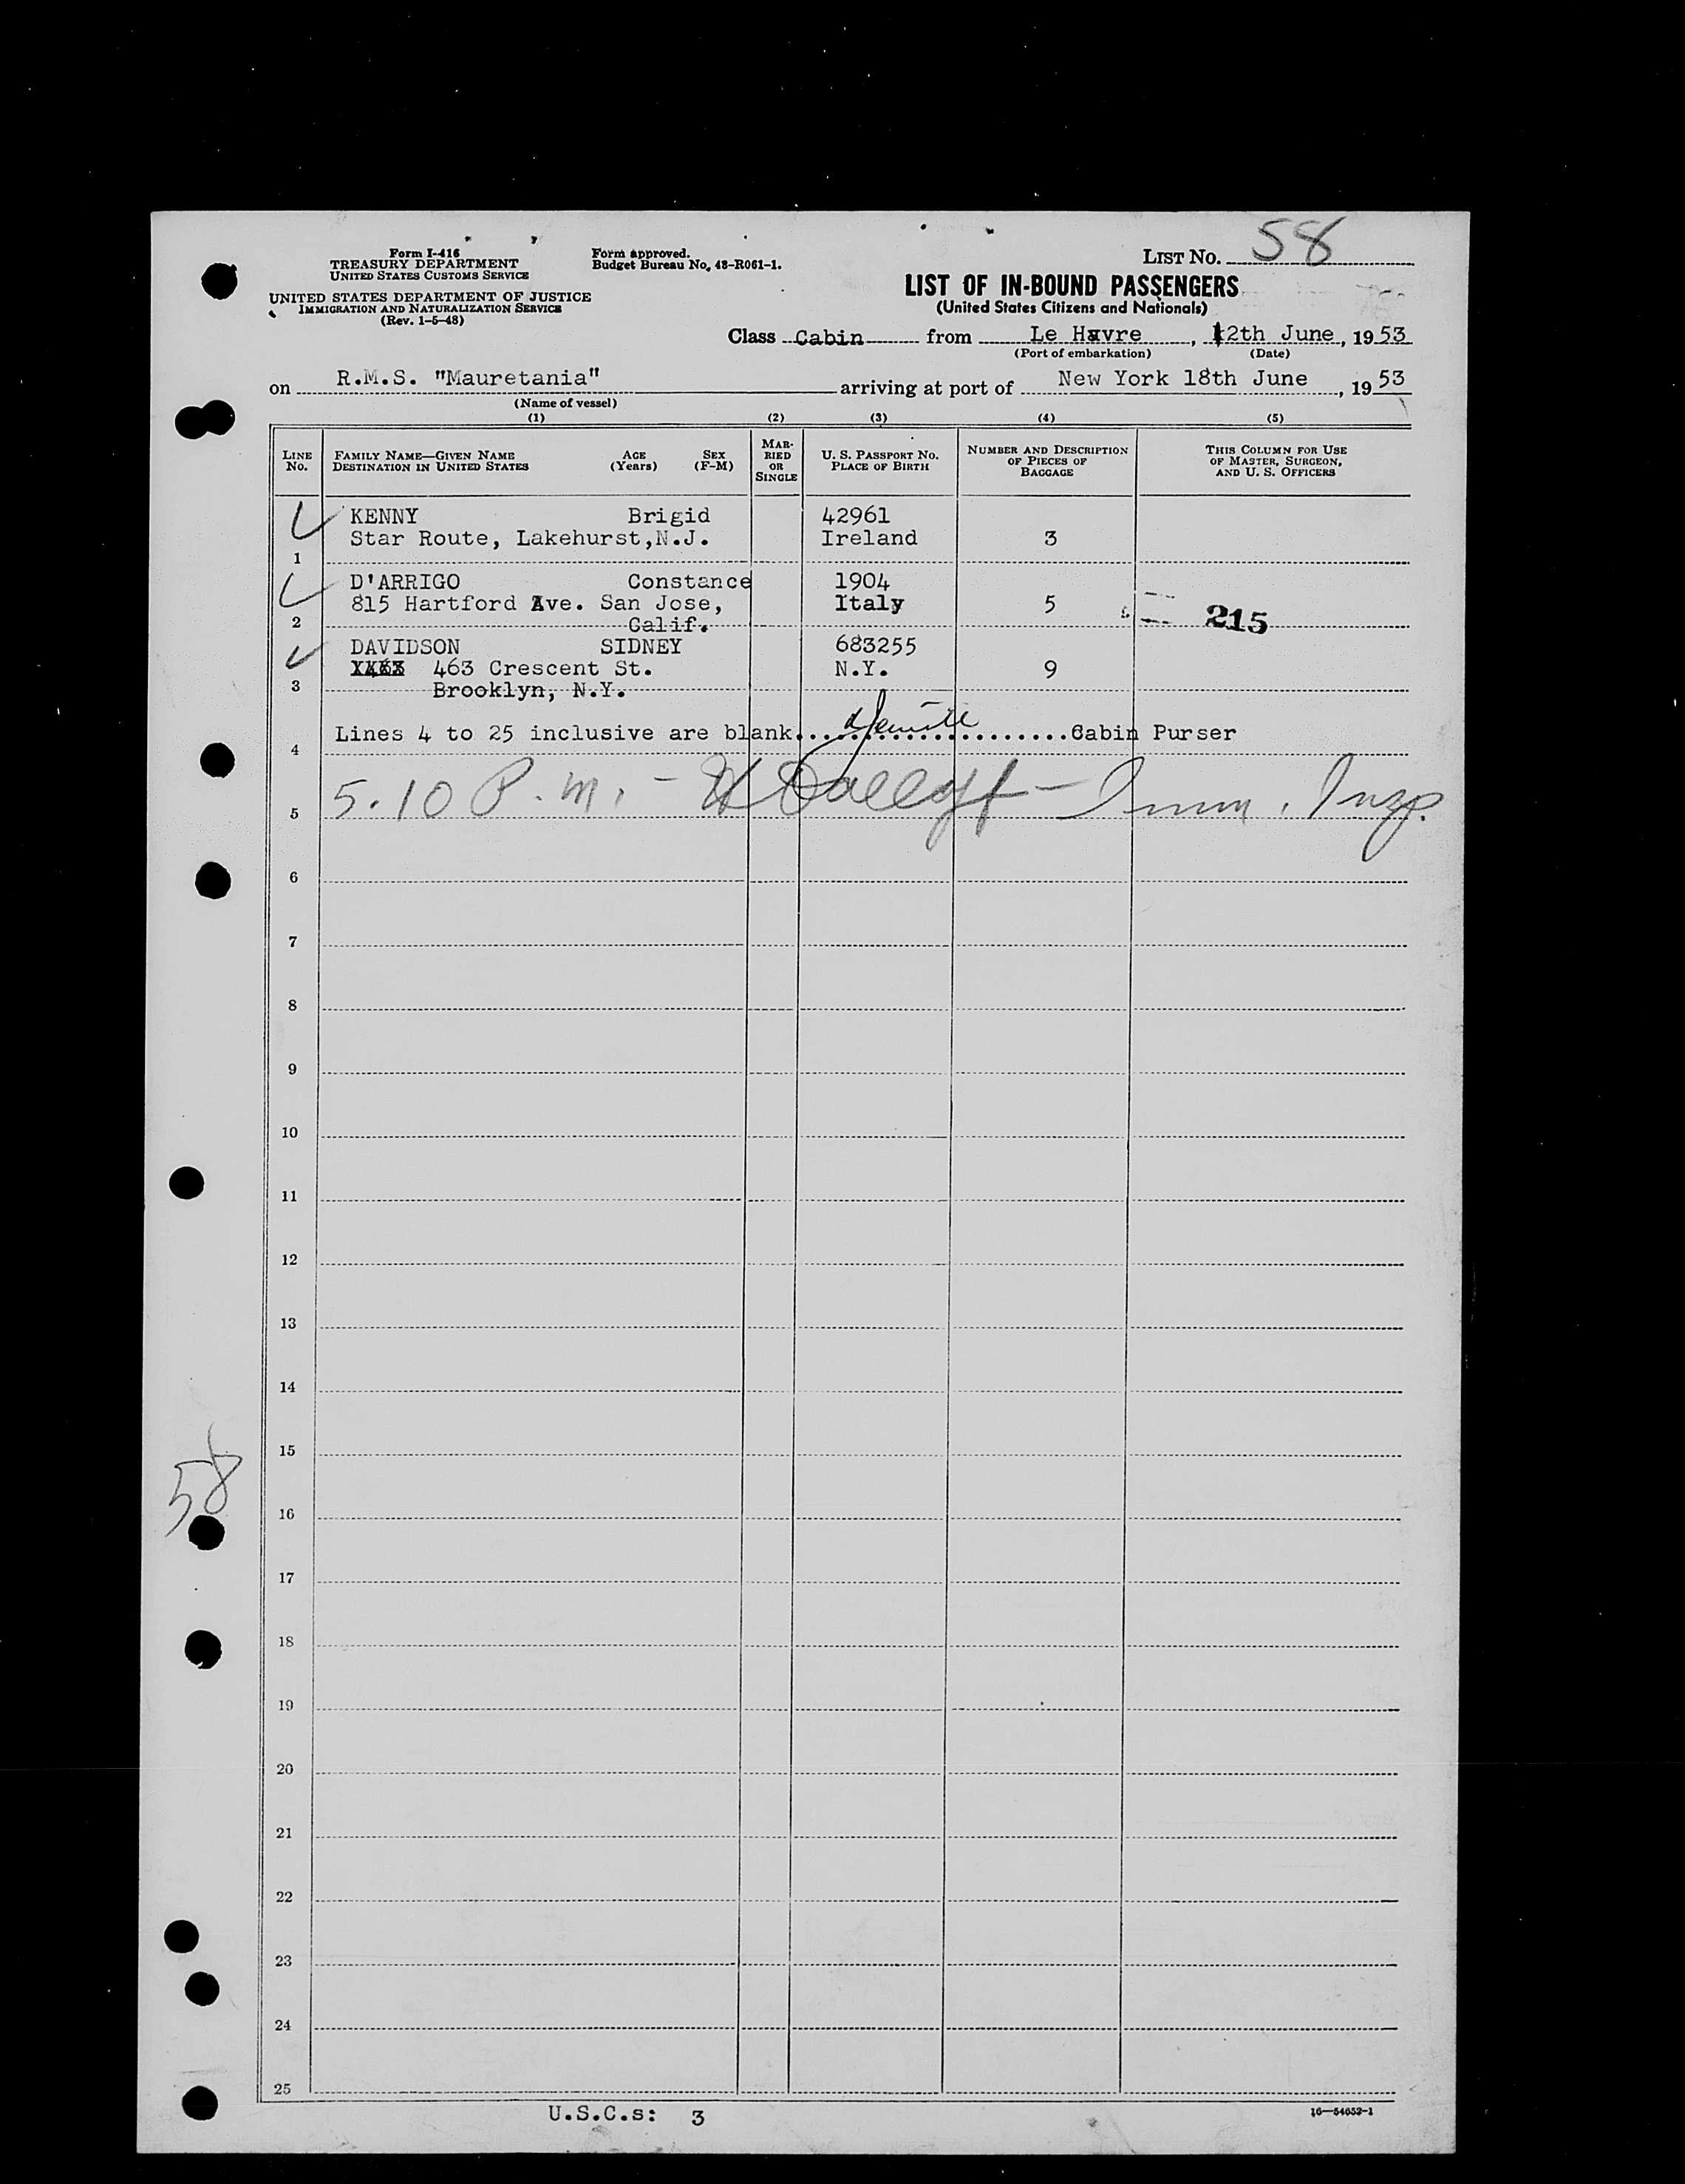 Form I-416
TREASURY DEPARTMENT
UNITED STATES CUSTOMS SERVICE
UNITED STATES DEPARTMENT OF JUSTICE
IMMIGRATION AND NATURALIZATION SERVICE
(Rev. 1-5-48)
Form approved.
Budget Bureau No. 43-R061-1.
LIST No. 58
LIST OF IN-BOUND PASSENGERS
(United States Citizens and Nationals)
Class Cabin from Le Havre, 12th June, 1953
(Port of embarkation) (Date)
on R.M.S. "Mauretania" arriving at port of New York 18th June, 1953
(Name of vessel)
(1) (2) (3) (4) (5)
LINE No. FAMILY NAME—GIVEN NAME DESTINATION IN UNITED STATES AGE (Years) SEX (F-M) MARRIED OR SINGLE U. S. PASSPORT No. PLACE OF BIRTH NUMBER AND DESCRIPTION OF PIECES OF BAGGAGE THIS COLUMN FOR USE OF MASTER, SURGEON, AND U. S. OFFICERS
KENNY Brigid 42961
Star Route, Lakehurst,N.J. Ireland 3
1
D'ARRIGO Constance 1904
815 Hartford Ave. San Jose, Italy 5 215
2 Calif.
DAVIDSON SIDNEY 683255
463 Crescent St. N.Y. 9
3 Brooklyn, N.Y.
Lines 4 to 25 inclusive are blank. Cabin Purser
4
5.10 P.m. - Imm. Insp.
5
6
7
8
9
10
11
12
13
14
15
58
16
17
18
19
20
21
22
23
24
25
U.S.C.s: 3
16—54652-1